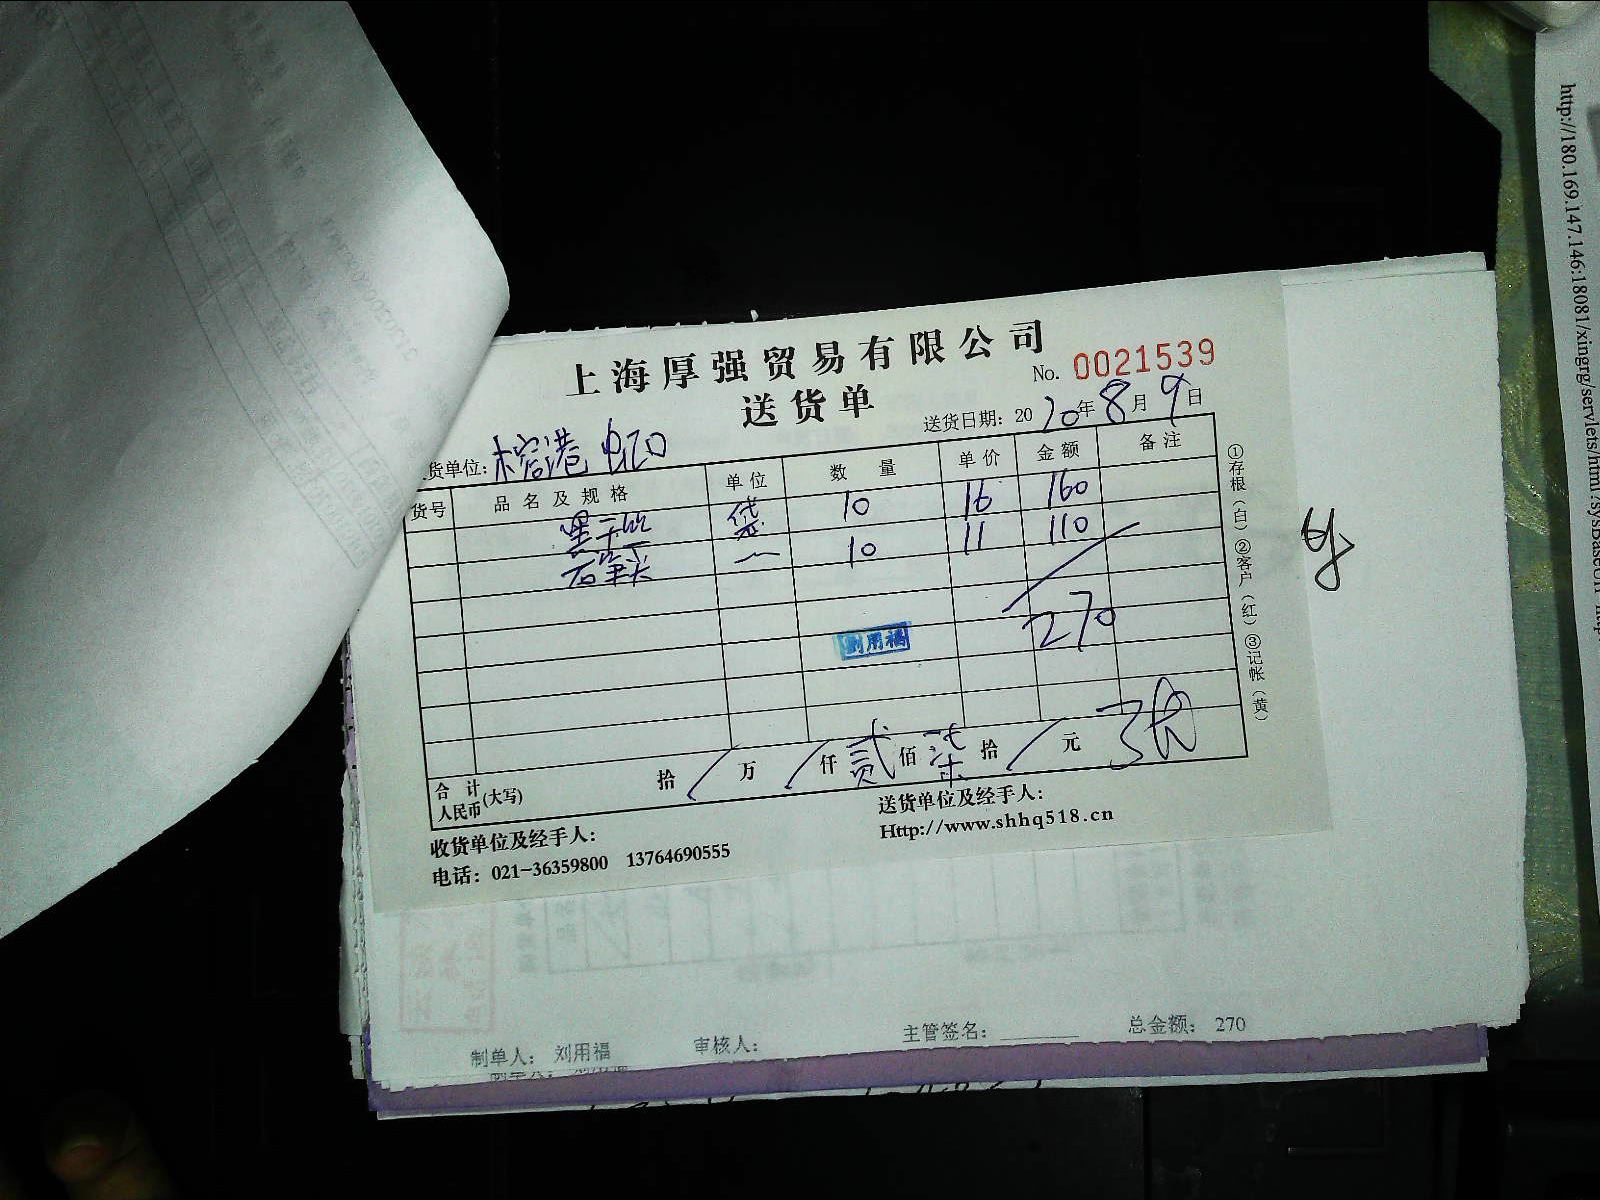 上海厚强贸易有限公司
送货单
No. 0021539
送货日期: 2020年8月9日
货单位:
货号 品名及规格 单位 数量 单价 金额 备注
袋 10 16 160
10 11 110
270
刘用福
合计人民币(大写) 拾 / 万 / 仟 贰 佰 柒 拾 / 元
收货单位及经手人:
送货单位及经手人:
电话: 021-36359800 13764690555
Http://www.shhq518.cn
①存根(白) ②客户(红) ③记帐(黄)
制单人: 刘用福 审核人: 主管签名: 总金额: 270
http://180.169.147.146:18081/xingrg/servlets/html?sysBaseUrl=http